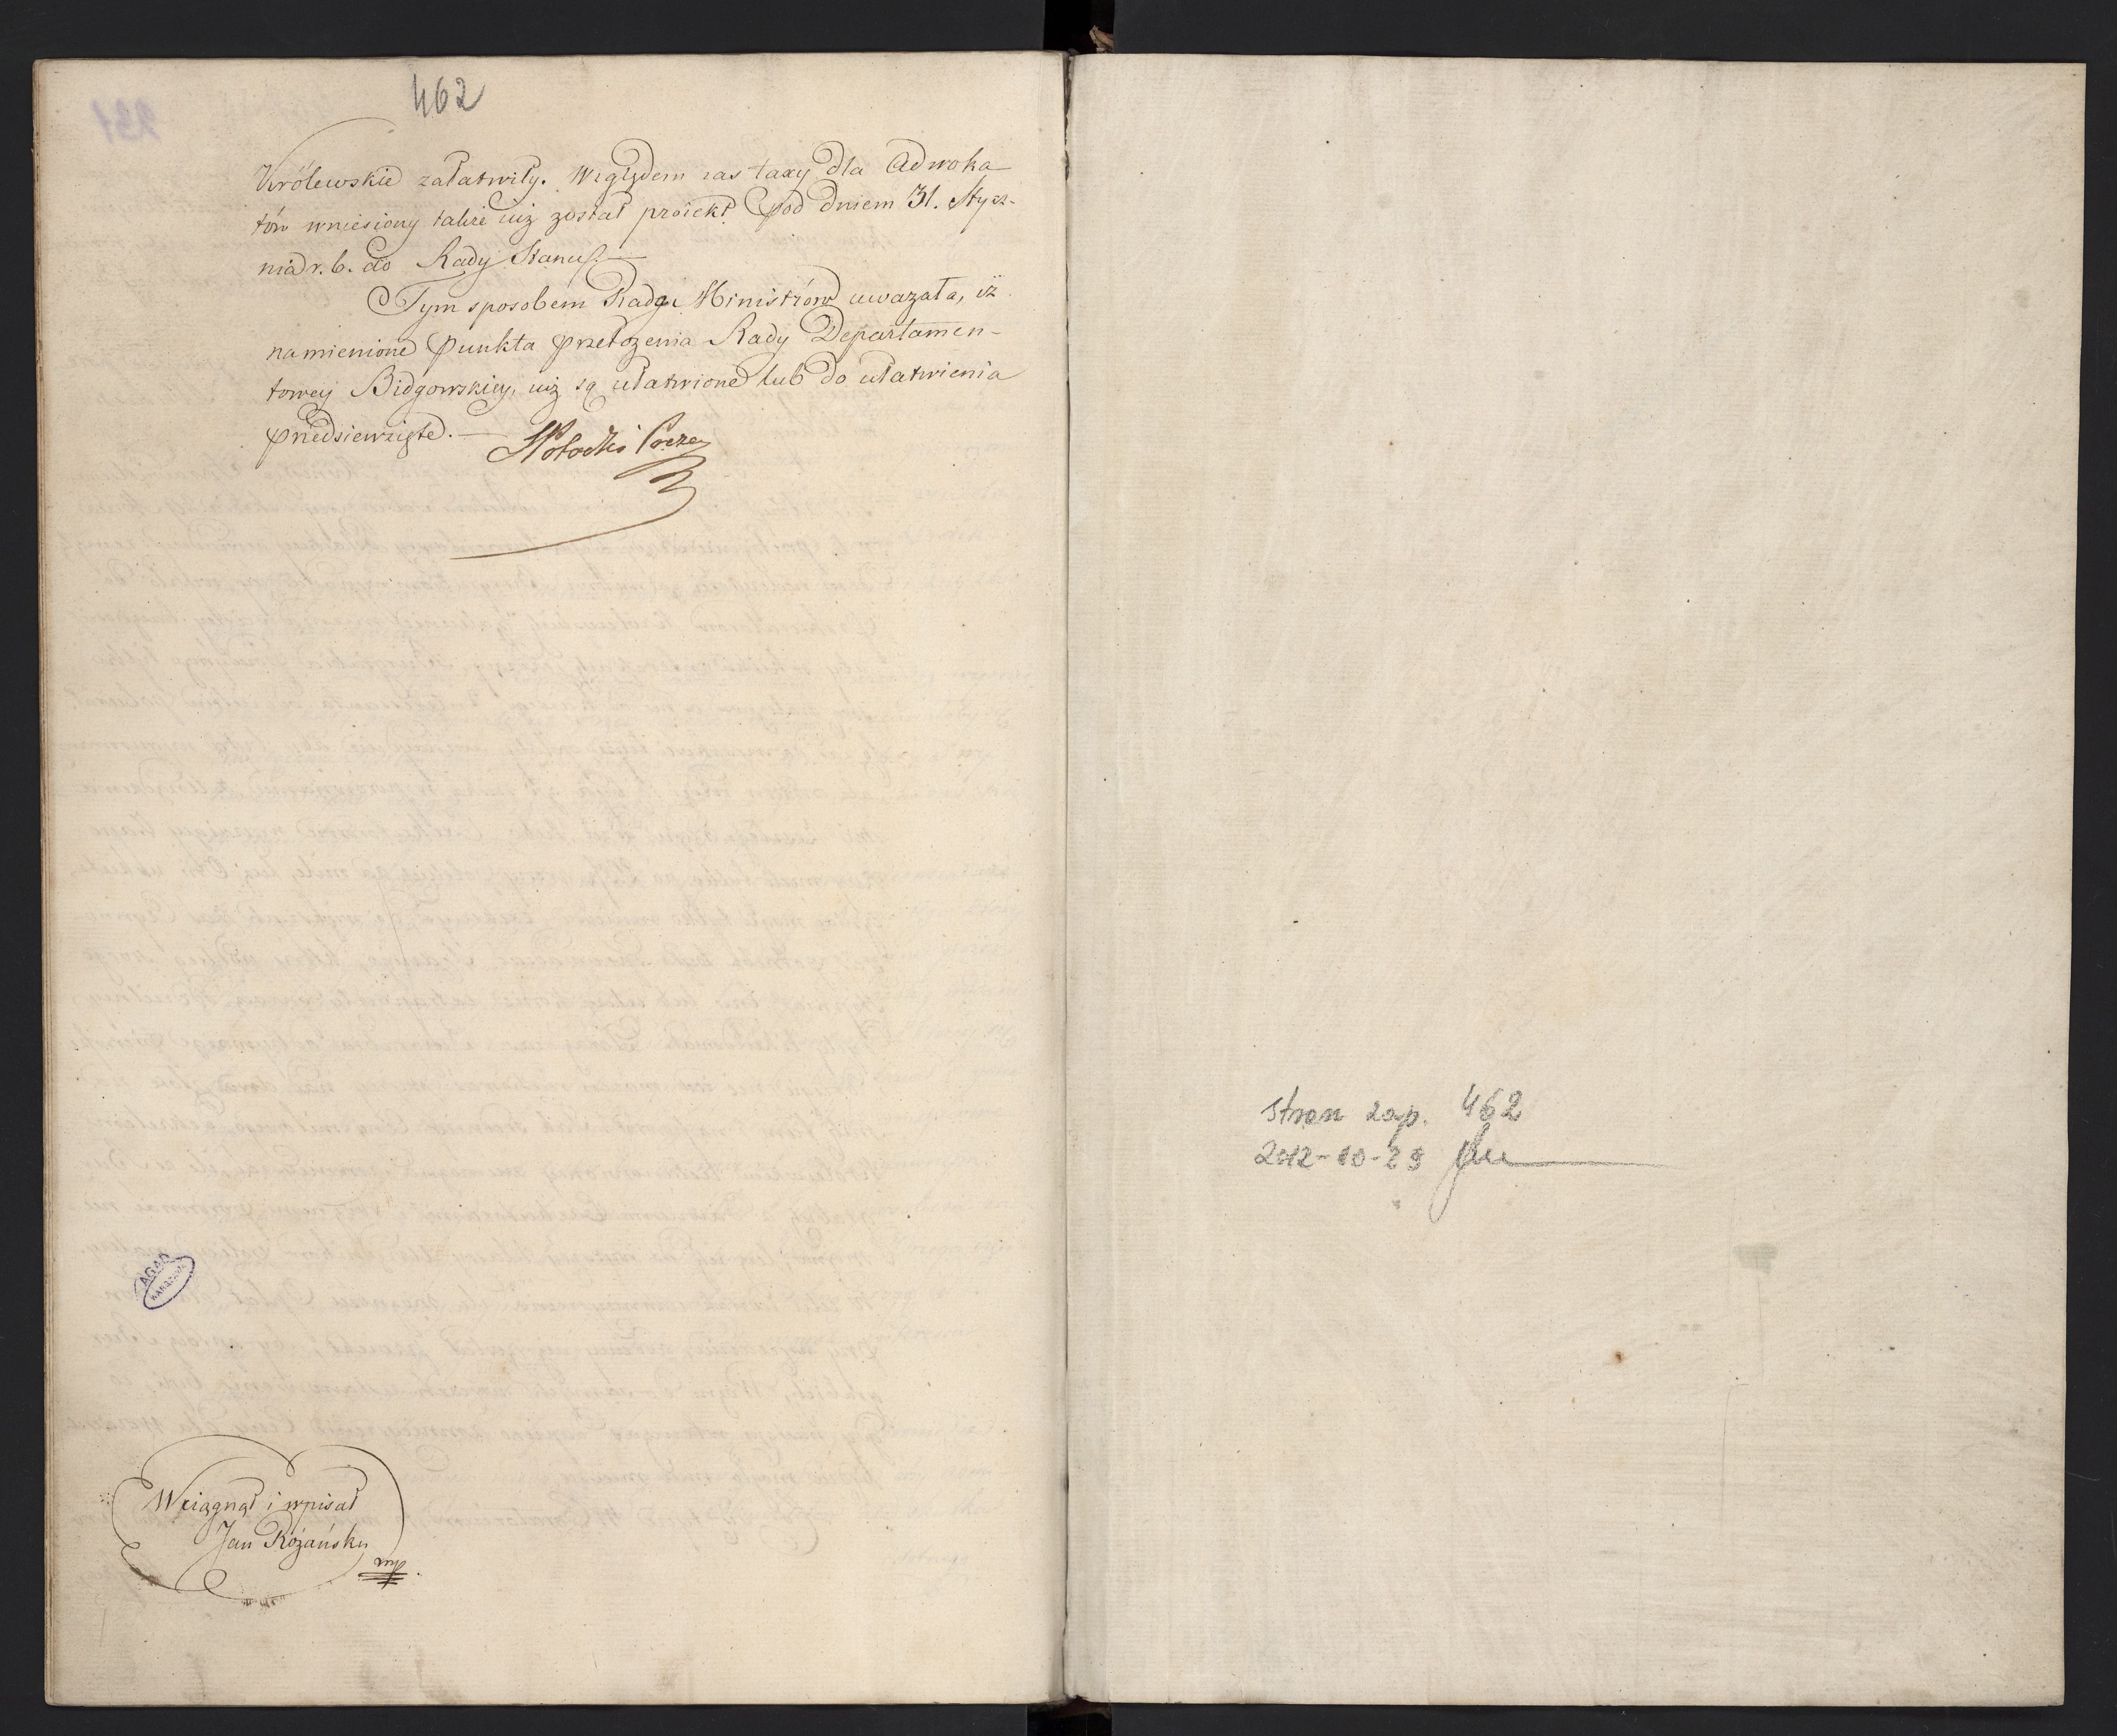 462
Królewskie załatwiły. Względem zas taxy dla Adwoka
tów wniesiony także iuż został proiekt pod dniem 31. Stycz-
nia r. b. do Rady Stanu.
Tym sposobem Rada Ministrów uwazała, iż
namienione Punkta przełozenia Rady Departamen-
towey Bidgowskiey, iuż są ułatwione lub do ułatwienia
przedsiewzięte. —
SPotocki Prezes
AGAD
WARSZAWA
Wciągnął i wpisał
Jan Różański
mp.
stron zap. 462
2012-10-29